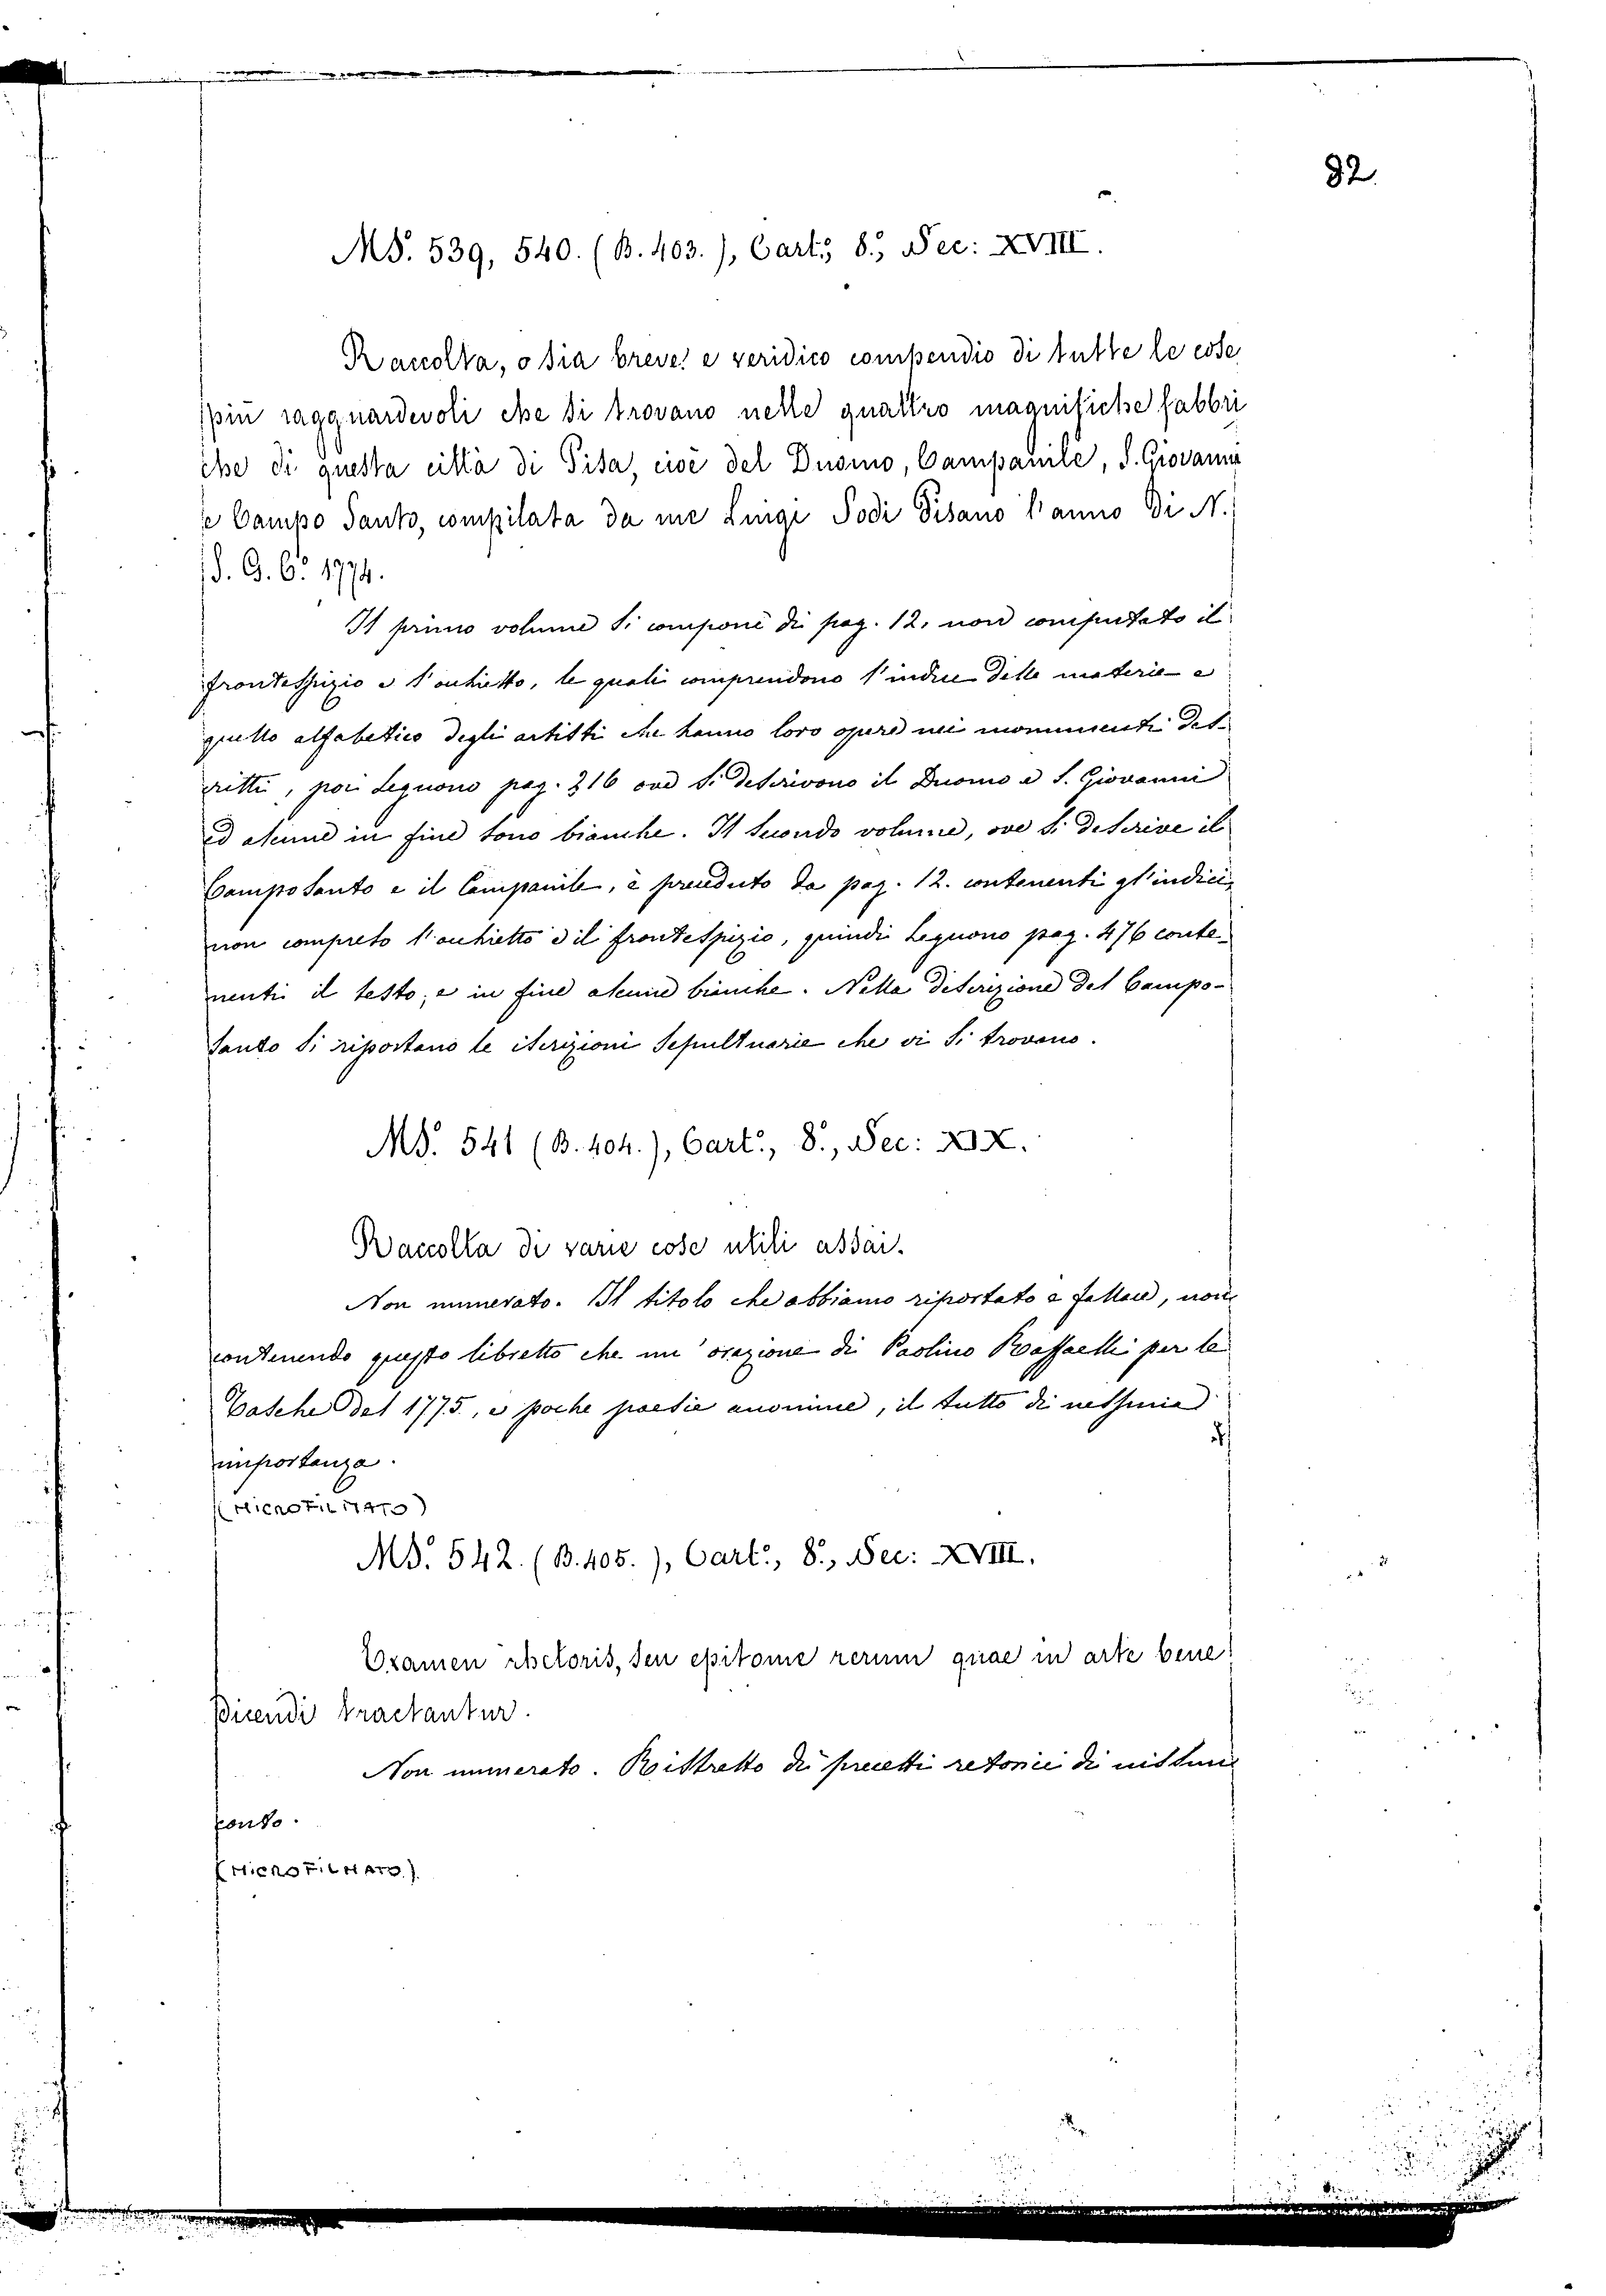 82.
MS. 539, 540. (B. 403.), Cart:, 8:, Sec: XVIII.
Raccolta, o sia breve, e veridico compendio di tutte le cose
più ragguardevoli che si trovano nelle quattro magnifiche fabbri
che di questa città di Pisa, cioè del Duomo, Campanile, S. Giovanni
e Campo Santo, compilata da me Luigi Podi Pisano l'anno di N.
S. G. C. 1774.
Il primo volume si compone di pag. 12, non computato il
frontespizio e l'occhietto, le quali comprendono l'indice delle materie e
quello alfabetico degli artisti che hanno loro opere nei monumenti des-
critti, poi seguono pag. 216 ove si descrivono il Duomo e S. Giovanni
ed alcune in fine sono bianche. Il secondo volume, ove si descrive il
Camposanto e il Campanile, è preceduto da pag. 12. contenenti gl'indici,
non compreso l'occhietto e il frontespizio, quindi seguono pag. 476 conte-
nenti il testo, e in fine alcune bianche. Nella descrizione del Campo-
santo si riportano le iscrizioni sepultuarie che vi si trovano.
MS. 541 (B. 404.), Cart:, 8:, Sec: XIX.
Raccolta di varie cose utili assai.
Non numerato. Il titolo che abbiamo riportato è fallace, non
contenendo questo libretto che un'orazione di Paolino Raffaelli per le
Tasche del 1775, e poche poesie anonime, il tutto di nessuna
importanza.
(MICROFILMATO)
MS. 542. (B. 405.), Cart:, 8:, Sec: XVIII.
Examen rhetoris, seu epitome rerum quae in arte bene
dicendi tractantur.
Non numerato. Ristretto di precetti retorici di nissun
conto.
(MICROFILMATO)